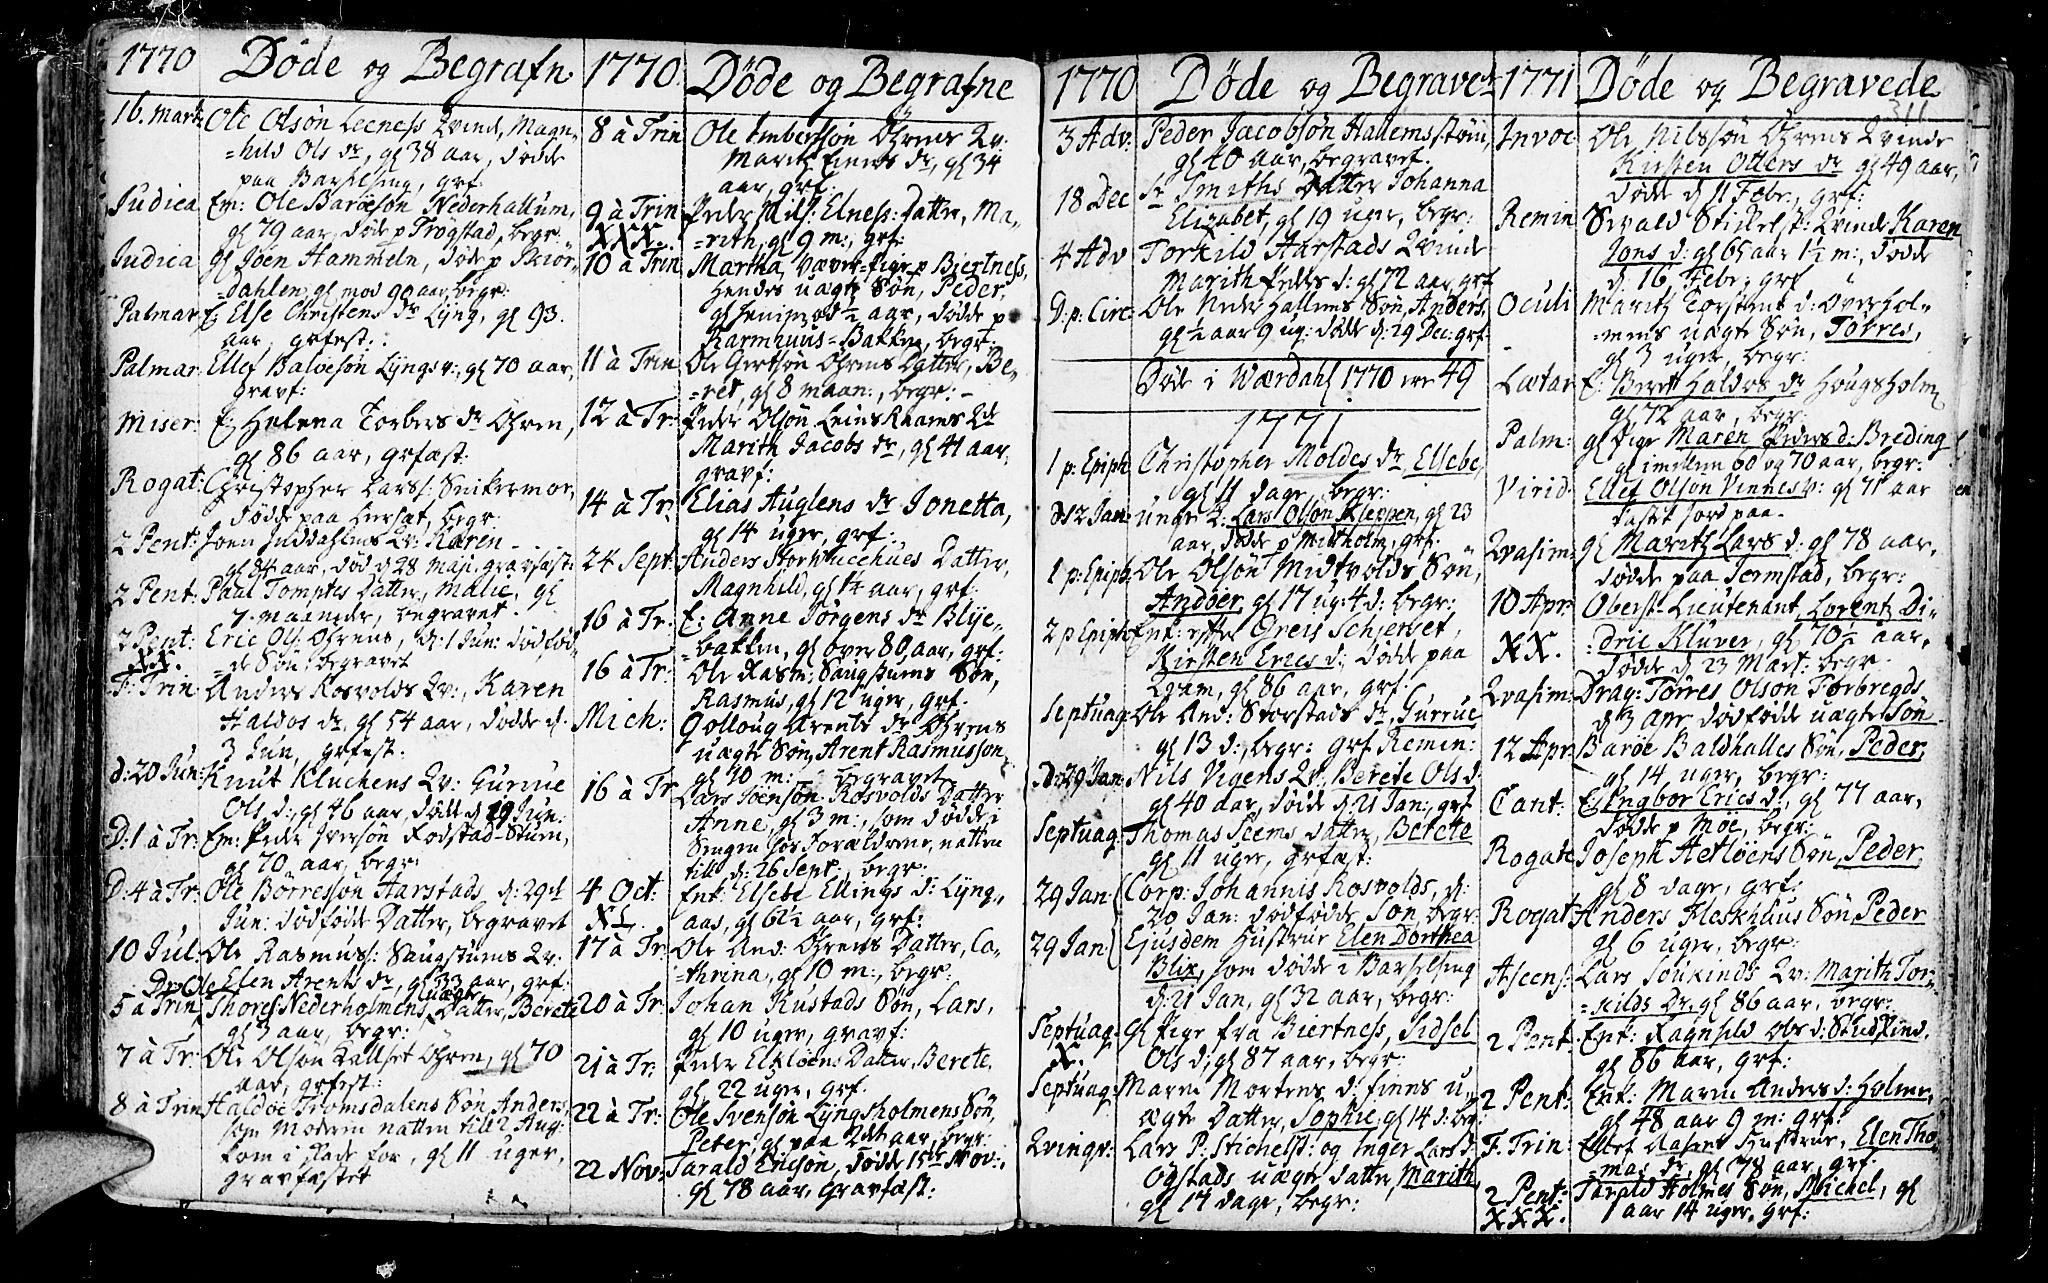 1770 Døde og Begrafn.
16. Mart: Ole Olsøn Leeness Qvind, Magn=
=hild Ols dr, gl 38 aar, døde
paa Barselseng, grf.
Judica Em: Ole Baroesøn Nederhallum,
gl 79 aar, døde p Trogstad, begr:
Judica gl Joen Hammeln, døde p Skior=
=dahlen, gl mod 90 aar, begr:
Palmar: E. Else Christens dr Lyng, gl 93.
aar, grfest.
Palmar: Ellef Balvesøn Lyngsv:, gl 70 aar,
gravf:
Miser: E. Helena Torbers dr Øhren,
gl 86 aar, grfæst.
Rogat: Christopher Larss: Snikermoe,
døde paa, begr:
2 Pent: Joen Juldahlens Qv: Karen
gl 84 aar, død d 28 Maji, gravfæst:
2 Pent: Paul Tomptes Datter, Malie, gl
7 maaneder, begravet.
2 Pent: Eric Ols: Øhrens, d: 1 Jun: dødfød=
XX. de Søn, begravet
F: Trin Anders Rosvolds Qv:, Karen
Haldos dr, gl 54 aar, døde d.
3 Jun, grfest.
d: 20 Jun: Knut Kluckens Qv: Gurrue
Ols d:, gl 46 aar, døde d 19 Jun:
D: 1 à Tr: Em: Peder Iversøn Rodstad-Stuen,
gl 70 aar, begr:
D: 4 à Tr: Ole Børresøn Harstads, d: 29de
Jun: dødfødde Datter, begravet
10 Jul: Ole Rasmuss: Saugstuens Qv:
Elen Arents dr, gl 33 aar, grf:
Dr Ole
5 à Trin Thores Nederholmens uægte Datter, Berete
gl 3 aar, begr:
7 à Tr: Ole Olsøn Kallset Øhren, gl 70
aar, grfest:
8 à Trin Haldoe Tromsdalens Søn, Anders,
som Moderen natten till 2 Aug:
kom i skade for, gl 11 uger,
gravfæstet
1770. Døde og Begrafne
8 à Trin Ole Embertssøn Øhrens Qv:
Marith Einers dr, gl 34
aar, grf:
9 à Trin Peder Nils: Elness: Datter, Ma=
XXX. =rith, gl 9 m:, grf:
10 à Trin Martha, Væver-Pige p Biertness,
hendes uægte Søn, Peder,
gl henimod ½ aar, døde p
Karmhuus=Bakken, begr:
11 à Trin Ole Gertsøn Øhrens Datter, Be=
=ret, gl 8 maan:, begr:
12 à Tr: Peder Olsøn Leins Raaens Qde
Marith Jacobs dr, gl 41 aar,
gravf:
14 à Tr: Elias Auglens dr Jonetta,
gl 14 uger, grf:
24 Sept: Anders Stornucchues Datter,
Magnhild, gl 14 aar, grf:
16 à Tr: E. Anne Jörgens dr Blye=
=bakken, gl over 80 aar, grf:
16 à Tr: Ole Rasm: Saugstuens Søn,
Rasmus, gl 12 uger, grf.
Mich: Golloug Arents dr Øhrens
uægte Søn, Arent Rasmussøn,
gl 10 m: begravet
16 à Tr Lars Joensøn Rosvolds Datter
Anne, gl 3 m:, som døde i
Sengen hos Forældrene, natten
till d: 26 Sept:, begr.
4 Oct: Enk: Elsebe Ellings d: Lyng=
XL. aas, gl 61½ aar, grf:
17 à Tr: Ole And: Øhrens Datter, Ca=
=thrina, gl 10 m:, begr:
20 à Tr: Johan Rustads Søn, Lars,
gl 10 uger, gravf:
21 à Tr: Peder Elkloens Datter, Berete,
gl. 22 uger, grf.
22 à Tr: Ole Svensøn Lyngsholmens Søn,
Peter, gl paa 2det aar, begr:
22 Nov: Tarald Ericsøn, døde 15de Nov:,
gl 78 aar, gravfæst:
1770 Døde og Begravede
3 Adv: Peder Jacobsøn Hallemsstøen,
gl 40 aar, begravet.
18 Dec Sr Smiths Datter Johanna
Elizabet, gl 19 uger, begr:
4 Adv Torkild Harstads Qvinde
Marith Peders d: gl 72 aar, grf
D: p: Circ: Ole Nederhallems Søn, Anders,
gl ½ aar 9 ug: døde d: 29 Dec: grf.
Døde i Værdahl 1770 ere 49
1771
1 p: Epiph Christopher Moldes dr, Elsebe,
gl 11 dage, begr:
d 12 Jan: unge K: Lars Olsøn Kleppen, gl 23
aar, døde p Midtholm, grf:
1 p: Epiph: Ole Olsøn Midtvolds Søn,
Andøer, gl 17 ug: 4 d: begr:
2 p Epiph: Enk: efter Greis Schjerset,
Kirsten Erics d: døde paa
Qvam, gl 86 aar, grf:
Septuag: Ole And: Storstads dr, Gurrue
gl 13 d:, begr: grf Remin:
D: 29 Jan: Nils Vigens Qv: Berete Ols d:
gl 40 aar, døde d 21 Jan:, grf
Septuag: Thomas Seems datter, Berete
gl 11 uger, grfæst:
29 Jan: Corp: Johannis Rosvolds, d:
20 Jan: dødfødde Søn, begr:
29 Jan: Ejusdem Hustrue Elen Dorthea
Blix, som døde i Barselseng
d: 21 Jan, gl 32 aar, begr:
Septuag: Gl Pige fra Biertness, Sidsel
X. Ols d: gl 87 aar, begr:
Septuag: Maren Mortens d: Finnes u=
ægte Datter, Sophie, gl 14 d: beg
Qvinqv: Lars P: Stichelst: og Inger Lars d:
Ogstads uægte datter, Marith,
gl 14 dage, begr:
1771 Døde og Begravede
311
Invoc: Ole Nilssøn Øhrens Qvinde
Kirsten Otters dr gl 49 aar,
døde d 11 Febr:, grf:
Remin Sivald Stickelst: Qvinde Karen
Jons d: gl 65 aar 1½ m:, døde
d. 16 Febr: grf
Oculi Marith Torstens d: Overhol=
=mens uægte Søn, Torres,
gl 3 uger, begr:
Lætar E: Berett Haldors dr Hougsholm
gl 72 aar, begr:
Palm: gl Pige Maren Peders d: Breding
gl imellem 60 og 70 aar, begr:
Virid. Ellef Olsøn Vinnesv: gl 71 aar
kastet jord paa.
Qvasim: gl Marith Lars d: gl 78 aar,
døde paa Termstad, begr:
10 Apr: Oberst-Lieutenant Lorentz Di=
XX. =dric Klüver, gl 70½ aar,
døde d 23 Mart: begr.
Qvasim: Drag: Torres Olsøn Forbregds
d 3 Apr dødfødde uægte Søn
12 Apr: Baroe Baldhalles Søn, Peder,
gl 14 uger, begr:
Cant: E. Ingbor Erics d:, gl 77 aar,
døde p Moe, begr:
Rogate Joseph Aekloens Søn, Peder,
gl 8 dage, grf:
Rogat: Anders Fleskhuus Søn, Peder
gl 6 uger, begr:
Ascens: Lars Soukinds Qv: Marith Tor=
=kilds Dr, gl 86 aar, begr:
2 Pent: Enk: Ragnhild Ols d: Stubskind.
gl 86 aar, grf:
2 Pent: Enk: Maren Anders d: Holme,
gl 48 aar 9 m: grf:
F: Trin: Ellef Aasens Hustrue, Elen Tho
=mas dr, gl 78 aar, grf.
2 Pent: Tarald Holmes Søn, Michel, gl
XXX. 1 aar 14 uger, grf: